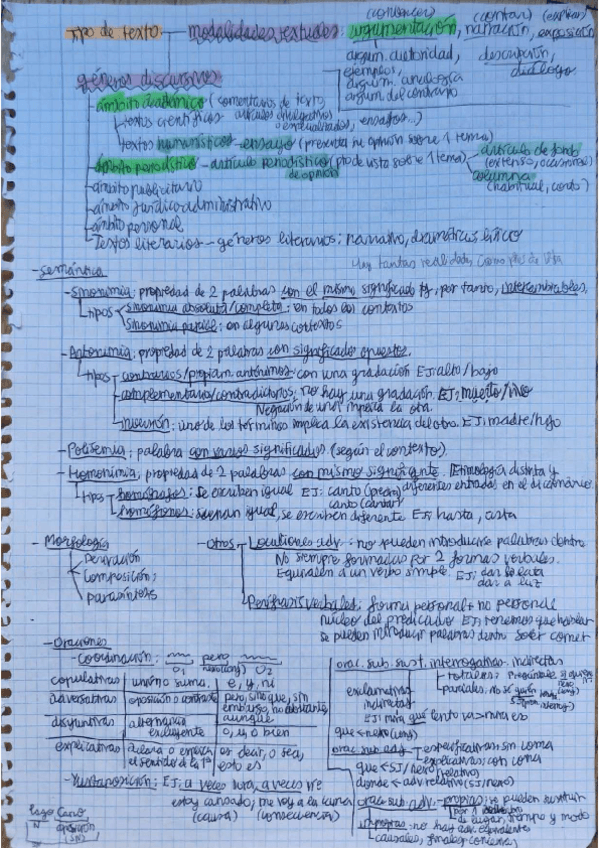 (convencer) (contar) (explicar)
Tipo de texto: modalidades textuales: argumentación, narración, exposición
argum. autoridad, descripción,
ejemplos, diálogo
géneros discursivos argum. analogía
argum. del contrario
ámbito académico (comentarios de texto,
textos científicos artículos divulgativos
o especializados, ensayos...)
textos humanísticos - ensayo (presenta mi opinión sobre 1 tema)
ámbito periodístico - artículo periodístico (pto de vista sobre 1 tema) artículo de fondo
de opinión (extenso, ocasional)
columna
(habitual, corto)
ámbito publicitario
ámbito jurídico-administrativo
ámbito personal
Textos literarios - géneros literarios: narrativo, dramático, lírico
Hay tantas realidades como de vista
- Semántica
- Sinonimia: propiedad de 2 palabras con el mismo significado y, por tanto, intercambiables,
tipos sinonimia absoluta/completa: en todos los contextos
Sinonimia parcial: en algunos contextos
- Antonimia: propiedad de 2 palabras con significado opuesto.
tipos - contrarios/propiam. antónimos: con una gradación EJ: alto/bajo
complementarios/contradictorios: no hay una gradación. EJ: muerto/vivo
Negación de uno implica la otra.
inversión: uno de los términos implica la existencia del otro. EJ: madre/hijo
- Polisemia: palabra con varios significados. (según el contexto).
- Homonimia: propiedad de 2 palabras con mismo significante. Etimología distinta y
tipos homógrafos: se escriben igual EJ: canto (piedra) diferentes entradas en el diccionario.
canto (cantar)
homófonos: suenan igual, se escriben diferente EJ: hasta, asta
- Morfología - otros - Locuciones adv: no pueden introducirse palabras dentro
Derivación No siempre formadas por 2 formas verbales.
Composición; Equivalen a un verbo simple. EJ: dar la lata
Parasíntesis dar a luz
Perífrasis verbales: forma personal + no personal
núcleo del predicado EJ: tenemos que hablar
se pueden introducir palabras dentro soler comer
- Oraciones
- Coordinación: pero
O1 nexo (conj) O2
copulativas unión o suma, e, y, ni
adversativas oposición o contraste pero, sino que, sin
embargo, no obstante,
aunque
disyuntivas alternancia o, u, o bien
excluyente
explicativas aclara o explica es decir, o sea,
el sentido de la 1ª esto es
- Yuxtaposición: EJ: a veces llora, a veces ríe
estoy cansado, me voy a la cama
(causa) (consecuencia)
orac. sub. sust. interrogativas indirectas
totales:
parciales: no sé quién
exclamativas
indirectas
EJ: mira qué lento va
que = nexo (conj)
orac. sub adj - especificativas: sin coma
explicativas: con coma
que = SJ/nexo (relativo)
donde = adv. relativo (SJ/nexo)
orac. sub. adv. - propias: se pueden sustituir
por 1 adverbio
de lugar, tiempo y modo
impropias: no hay adv. equivalente
causales, finales,